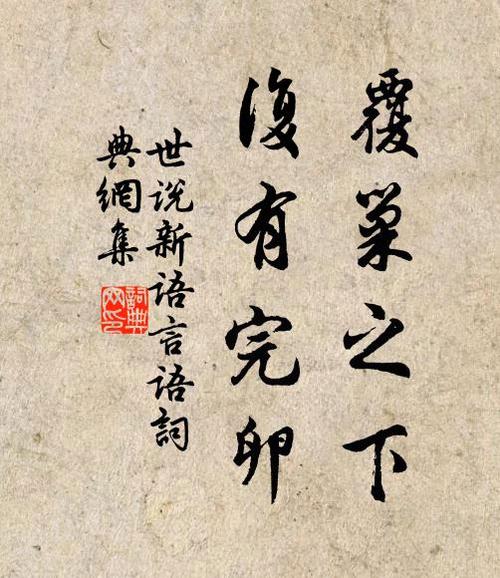 覆巢之下
復有完卵
世说新語言語詞
典網集
詞典网印